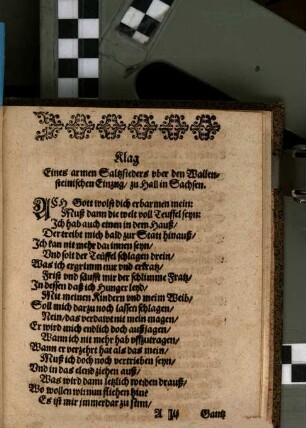 Klag
Eines armen Saltzsieders vber den Wallen-
steinischen Einzug/ zu Hall in Sachsen.
ACH Gott wolst dich erbarmen mein:
Muß dann die welt voll Teuffel seyn:
Ich hab auch einen in dem Hauß/
Der treibt mich bald zur Statt hinauß/
Ich kan nit mehr da innen seyn/
Und solt der Teüffel schlagen drein/
Was ich ergrimm nur und erkratz/
Frist und säufft mir der schlimme Fratz/
In dessen daß ich Hunger leyd/
Mit meinen Kindern und meim Weib/
Soll mich darzu noch lassen schlagen/
Nein/ das verdawt nit mein magen/
Er wird mich endlich doch außjagen/
Wann ich nit mehr hab uffzutragen/
Wann er verzehrt hat als das mein/
Muß ich doch noch vertrieben seyn/
Vnd in das elend ziehen auß/
Was wird dann letzlich werden drauß/
Wo wollen wir nun fliehen hin
Es ist mir immerdar zu sinn/
A Gantz